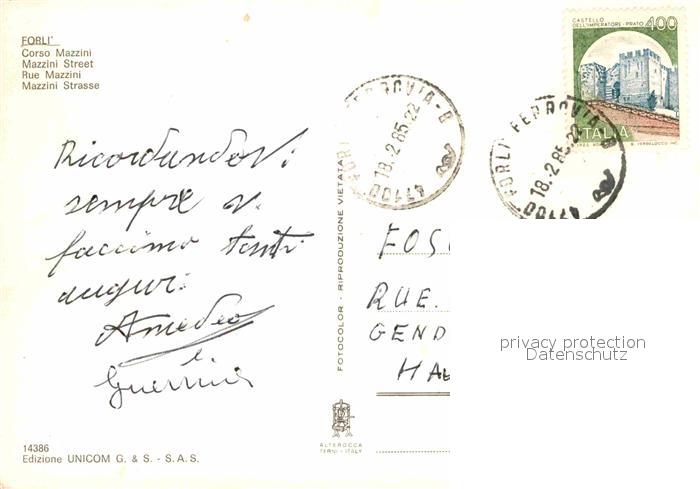 FORLI'
Corso Mazzini
Mazzini Street
Rue Mazzini
Mazzini Strasse
Ricordandovi
sempre vi
facciamo tanti
auguri
Amedeo
e
14386
Edizione UNICOM G. & S. - S.A.S.
FOTOCOLOR - RIPRODUZIONE VIETATA
ALTEROCCA
TERNI - ITALY
FORLI' FERROVIA-B
18.2.85.22
47100
CASTELLO
DELL'IMPERATORE - PRATO
400
ITALIA
FORLI' FERROVIA-B
18.2.85.22
47100
FOSC
RUE.
GEND
HAL
privacy protection
Datenschutz